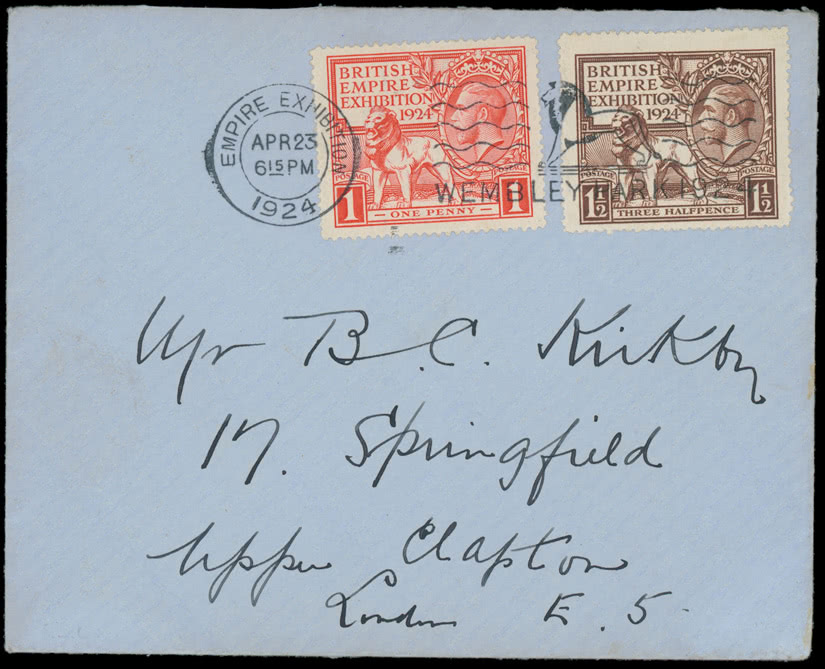 EMPIRE EXHIBITION
APR 23
6 15 PM
1924
BRITISH
EMPIRE
EXHIBITION
1924
POSTAGE POSTAGE
1 ONE PENNY 1
BRITISH
EMPIRE
EXHIBITION
1924
POSTAGE POSTAGE
1½ THREE HALFPENCE 1½
WEMBLEY PARK 1924
Mr B. C. Kirkby
17. Springfield
Upper Clapton
London E. 5.